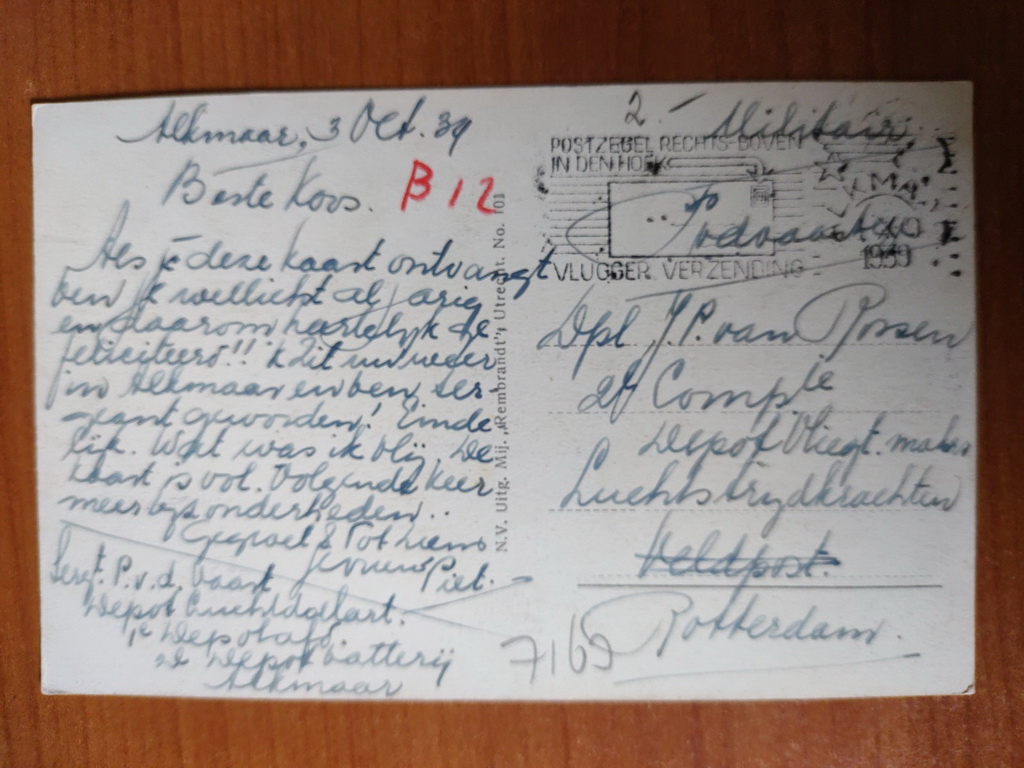 Alkmaar, 3 Oct. 39
Beste Koos. B 12
Als je deze kaart ontvangt
ben je wellicht al jarig
en daarom hartelijk ge
feliciteerd!! k zit nu weer
in Alkmaar en ben ser-
geant geworden! Einde
lijk. Wat was ik blij. De
kaart is vol. Volgende keer
meer bijzonderheden..
Gegroet & Tot ziens
Je vriend Piet.-
Sergt. P. v.d. Vaart
Depot Luchtdoelart.
1e Depotafd.
2e Depot batterij
Alkmaar
N.V. Uitg. Mij. „Rembrandt", Utrecht. No. 101
2.- Militair
POSTZEGEL RECHTS-BOVEN
IN DEN HOEK
VLUGGER VERZENDING
1939
Dpl J. P. van Rossen
Comple
Depot Vliegt. mater.
Luchtstrijdkrachten
Veldpost.
Rotterdam.
7169